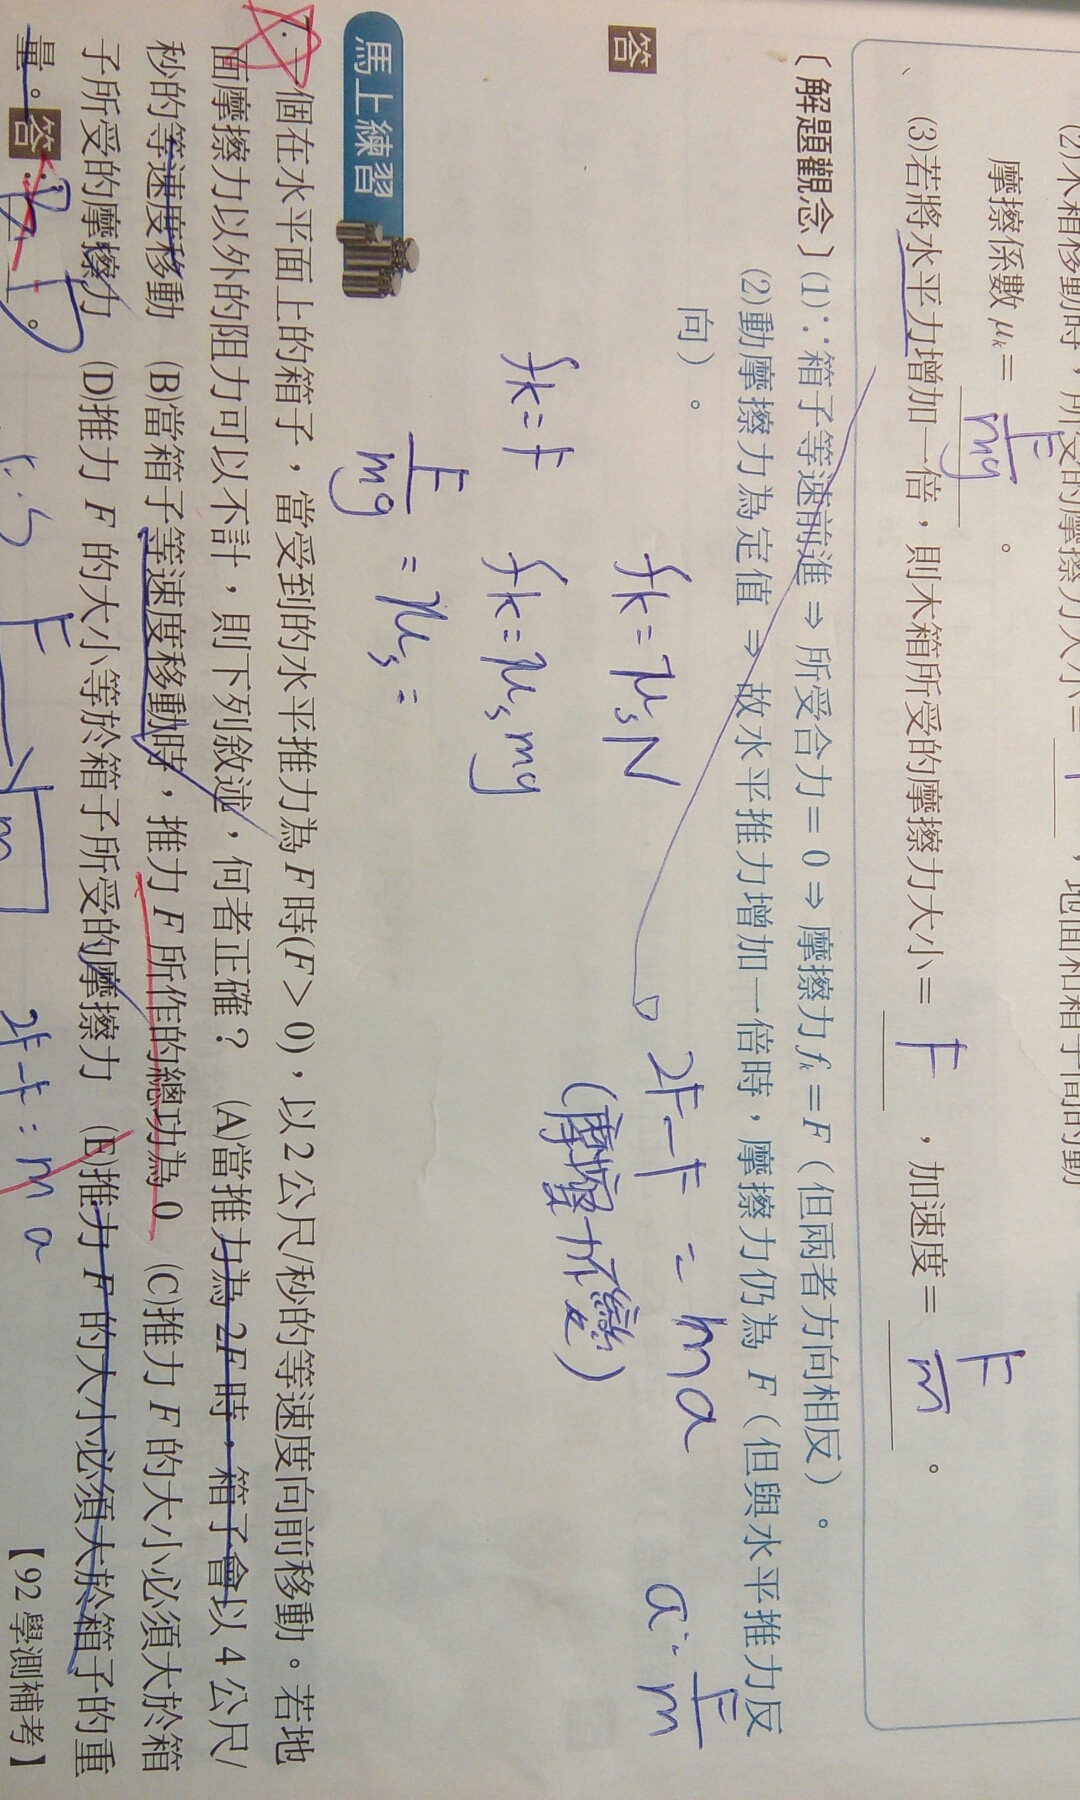 (2)木箱移動時，所受的摩擦力大小= F ，地面和箱子間的動
摩擦係數 μk= F/mg 。
(3)若將水平力增加一倍，則木箱所受的摩擦力大小= F ，加速度= F/m 。
〔解題觀念〕(1)∵箱子等速前進 ⇒ 所受合力= 0 ⇒ 摩擦力 fk = F（但兩者方向相反）。
(2)動摩擦力為定值 ⇒ 故水平推力增加一倍時，摩擦力仍為 F（但與水平推力反
向）。
答
fk=μsN
2F-F = ma
a=F/m
(摩擦力不變)
fk=F
fk=μsmg
F/mg = μs =
馬上練習
7.一個在水平面上的箱子，當受到的水平推力為 F 時(F > 0)，以 2 公尺/秒的等速度向前移動。若地
面摩擦力以外的阻力可以不計，則下列敘述，何者正確？ (A)當推力為 2F 時，箱子會以 4 公尺/
秒的等速度移動 (B)當箱子等速度移動時，推力 F 所作的總功為 0 (C)推力 F 的大小必須大於箱
子所受的摩擦力 (D)推力 F 的大小等於箱子所受的摩擦力 (E)推力 F 的大小必須大於箱子的重
量。答： D 。
【92 學測補考】
F
m
2F-F=ma